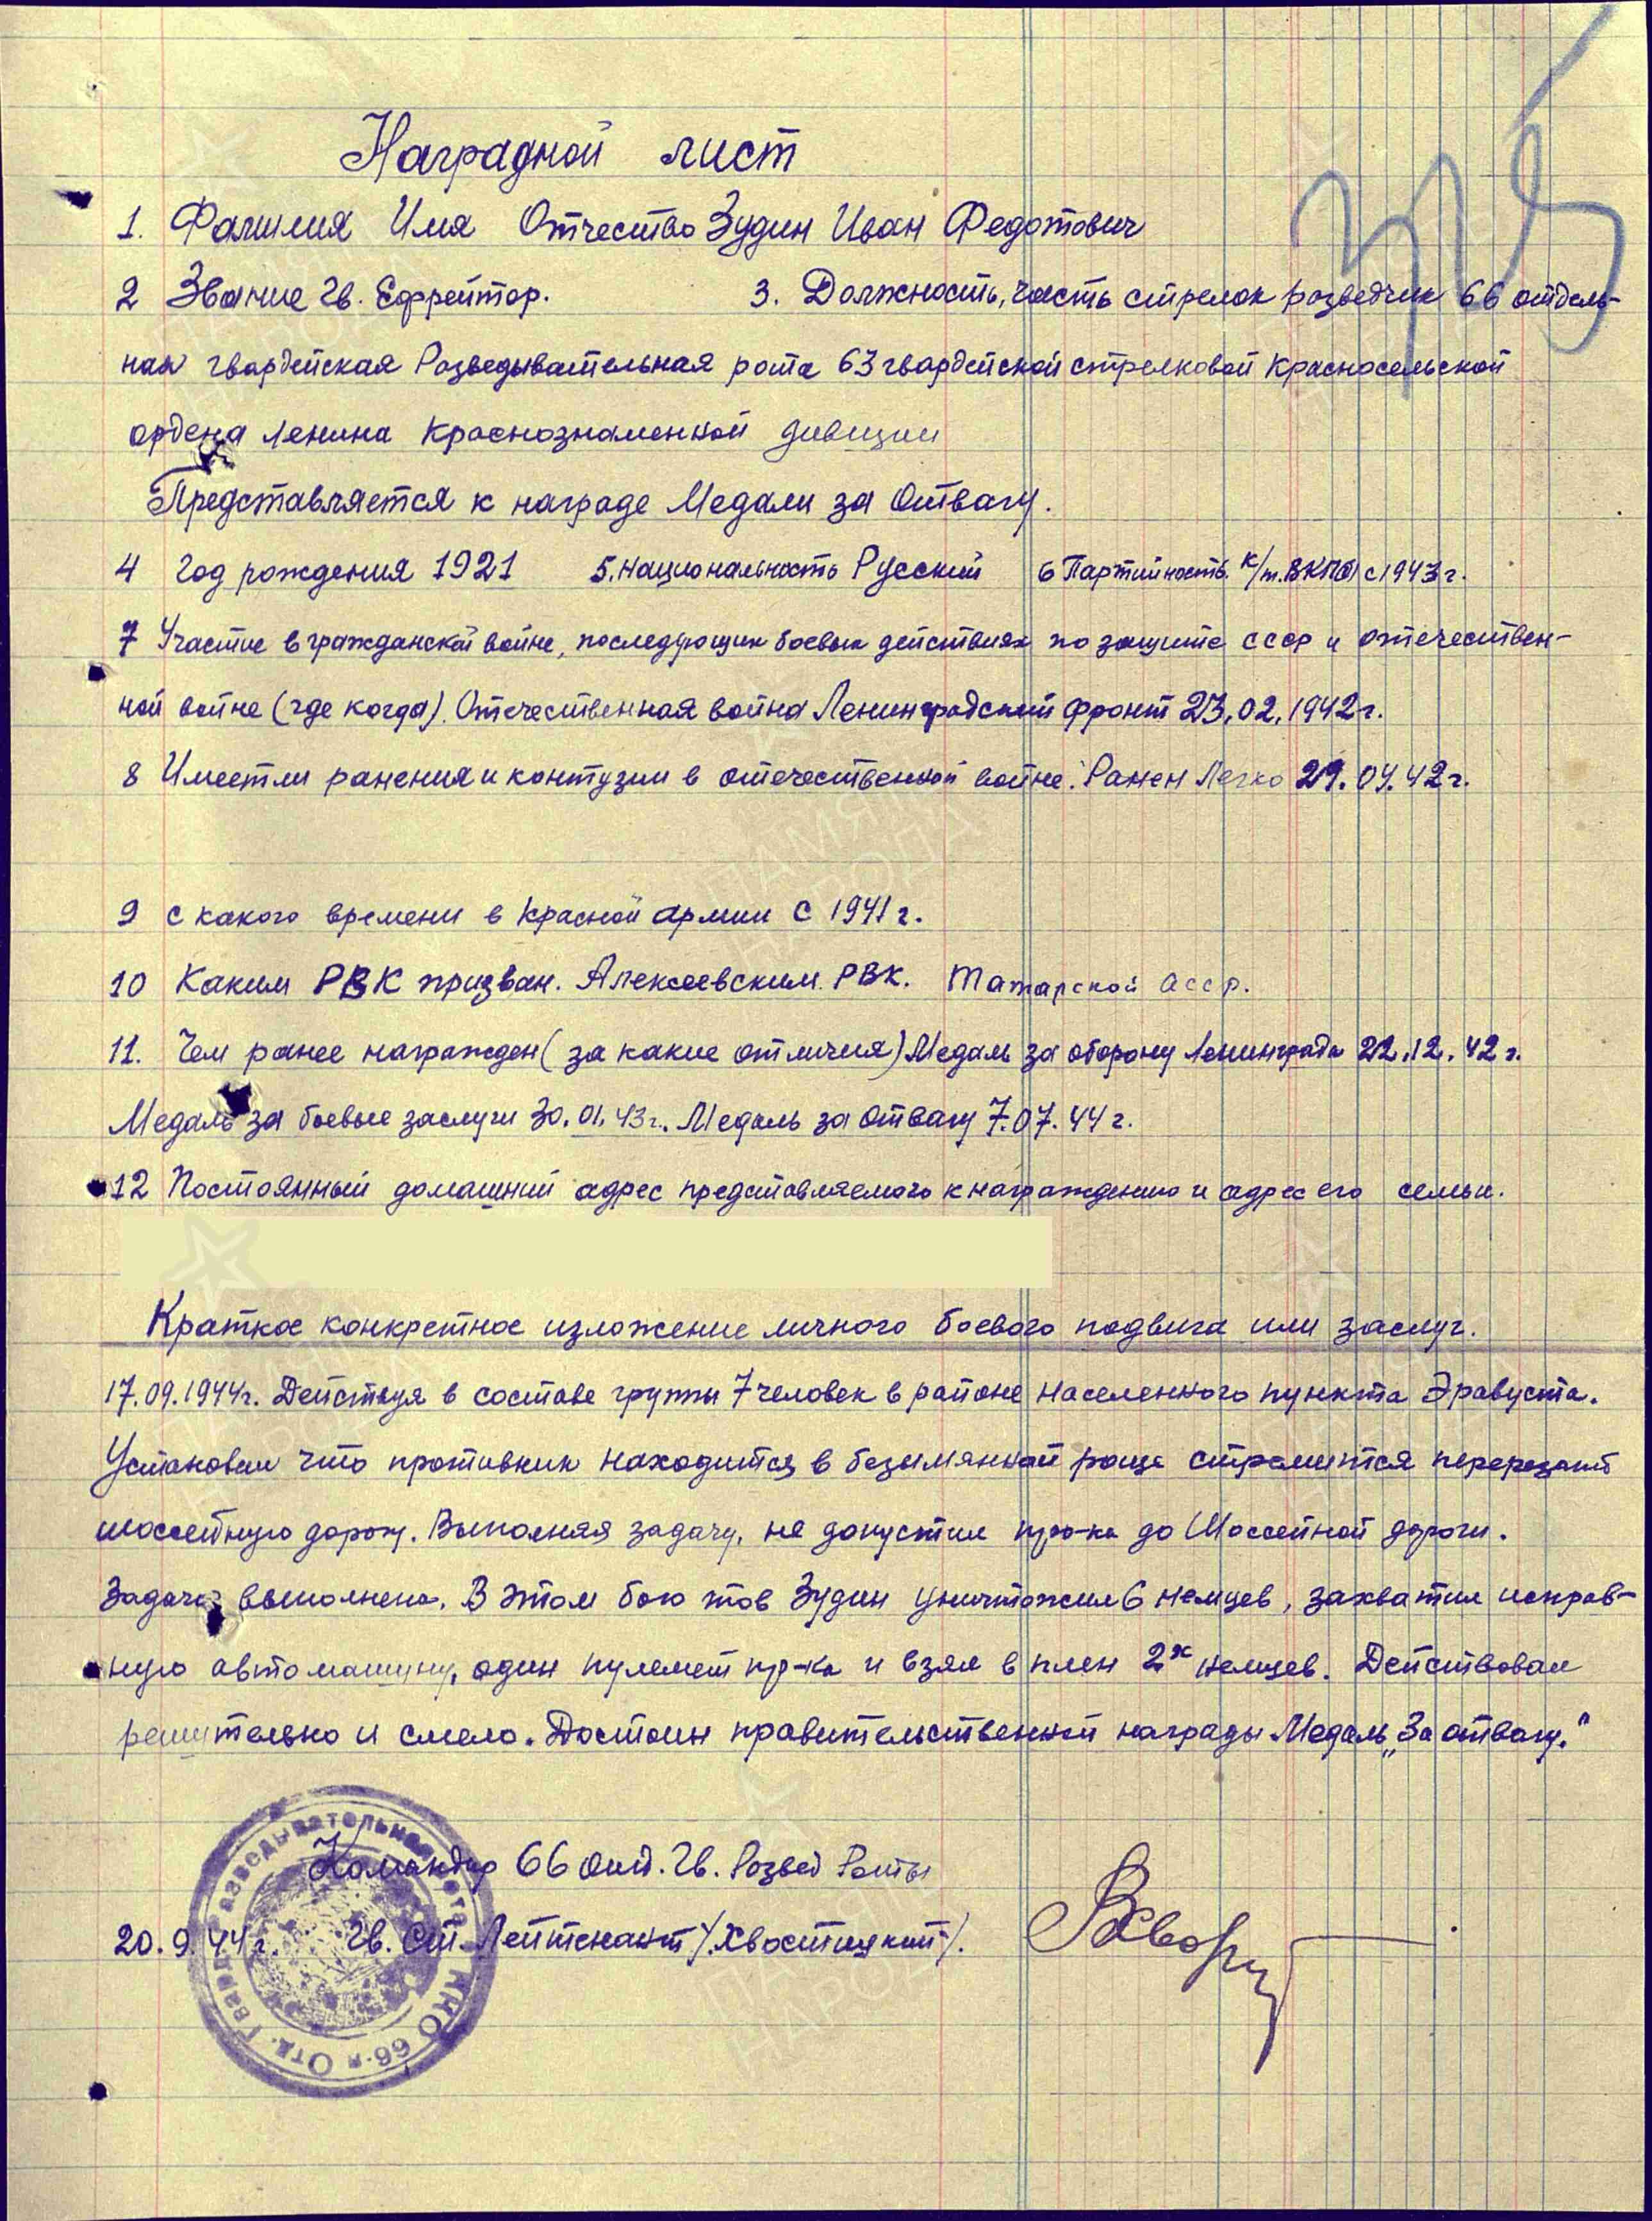 Наградной лист
1. Фамилия Имя Отчество Зудин Иван Федотович
2 Звание Гв. Ефрейтор. 3. Должность, часть стрелок разведчик 66 отдель-
ная гвардейская Разведывательная рота 63 гвардейской стрелковой Красносельской
ордена Ленина Краснознаменной дивизии
Представляется к награде Медали за Отвагу.
4 Год рождения 1921 5. Национальность Русский 6 Партийность. к/т. ВКП(б) с 1943 г.
7 Участие в гражданской войне, последующих боевых действиях по защите СССР и отечествен-
ной войне (где когда). Отечественная война Ленинградский фронт 23.02.1942 г.
8 Имеет ли ранения и контузии в отечественной войне. Ранен Легко 29.04.42 г.
9 с какого времени в Красной армии С 1941 г.
10 Каким РВК призван. Алексеевским РВК. Татарской АССР.
11. Чем ранее награжден (за какие отличия) Медаль за оборону Ленинграда 22.12.42 г.
Медаль за боевые заслуги 30.01.43 г. Медаль за Отвагу 7.07.44 г.
12 Постоянный домашний адрес представляемого к награждению и адрес его семьи.
Краткое конкретное изложение личного боевого подвига или заслуг.
17.09.1944г. Действуя в составе группы 7 человек в районе населенного пункта Эравуста.
Установил что противник находится в безымянной роще стремится перерезать
шоссейную дорогу. Выполняя задачу, не допустил пр-ка до Шоссейной дороги.
Задача выполнена. В этом бою тов Зудин уничтожил 6 немцев, захватил исправ-
ную автомашину, один пулемет пр-ка и взял в плен 2х немцев. Действовал
решительно и смело. Достоин правительственной награды Медаль „За отвагу."
Командир 66 отд. Гв. Развед Роты
20.9.44 г. Гв. Ст. Лейтенант /Хвостицкий/.
НКО 66-я Отд. Гвард. Разведывательная рота
ПАМЯТЬ НАРОДА